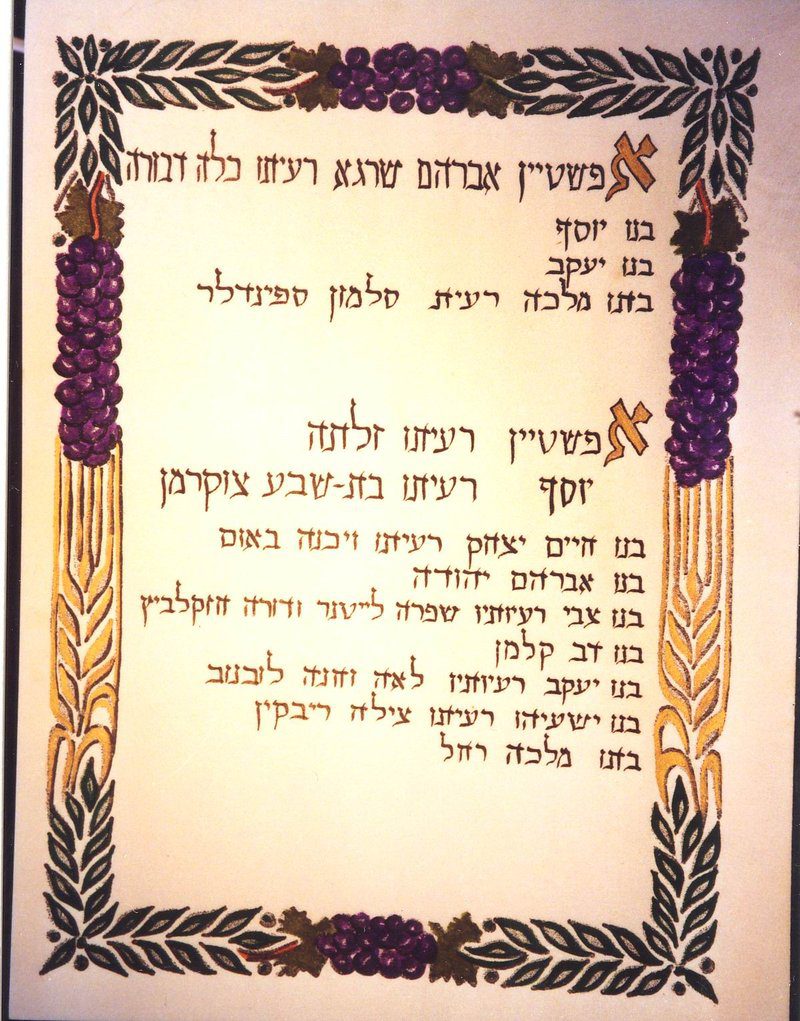 אפשטיין אברהם שרגא רעיתו כלה דבורה
בנו יוסף
בנו יעקב
בתו מלכה רעית סלמון ספינדלר
אפשטיין רעיתו זלתה
יוסף רעיתו בת-שבע צוקרמן
בנו חיים יצחק רעיתו זיכנה באום
בנו אברהם יהודה
בנו צבי רעיותיו שפרה לייטנר ודורה
בנו דב קלמן
בנו יעקב רעיותיו לאה וחנה
בנו ישעיהו רעיתו צילה ריבקין
בתו מלכה רחל